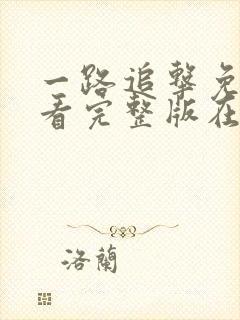 一路追击免
看完整版在
洛蘭